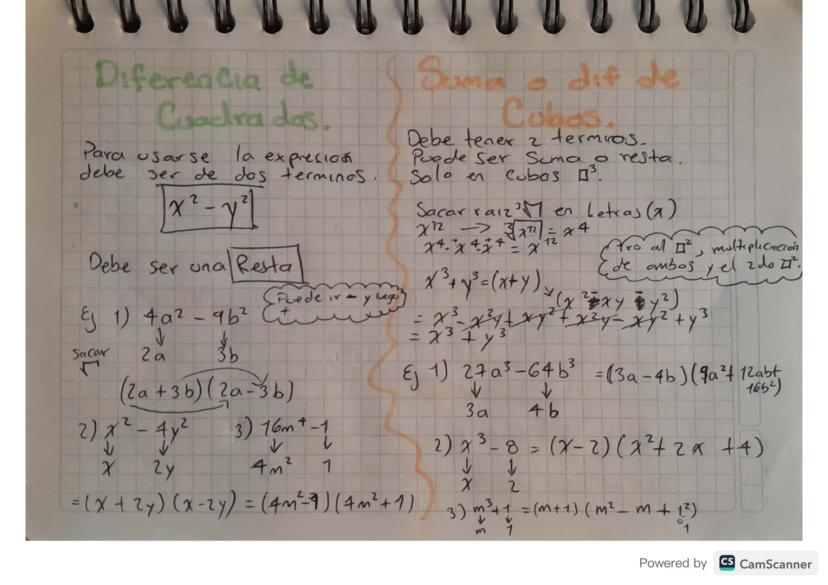 Diferencia de
Cuadrados.
Para usarse la expresion
debe ser de dos terminos.
x² - y²
Debe ser una Resta
Puede ir - y luego
+
Ej 1) 4a² - 9b²
sacar
√
2a 3b
(2a + 3b)(2a - 3b)
2) x² - 4y² 3) 16m⁴ - 1
x 2y 4m² 1
= (x + 2y)(x - 2y) = (4m² - 1)(4m² + 1)
Suma o dif de
Cubos.
Debe tener 2 terminos.
Puede ser Suma o resta.
Solo en Cubos □³.
Sacar raiz ³√ en Letras (x)
x¹² → ³√x¹² = x⁴
x⁴ · x⁴ · x⁴ = x¹²
1ro al □², multiplicación
de ambos y el 2do □².
x³ + y³ = (x + y)
(x² - xy + y²)
= x³ - x²y + xy² + x²y - xy² + y³
= x³ + y³
Ej 1) 27a³ - 64b³ = (3a - 4b)(9a² + 12ab +
16b²)
3a 4b
2) x³ - 8 = (x - 2)(x² + 2x + 4)
x 2
3) m³ + 1 = (m + 1)(m² - m + 1²)
m 1 1
Powered by CS CamScanner